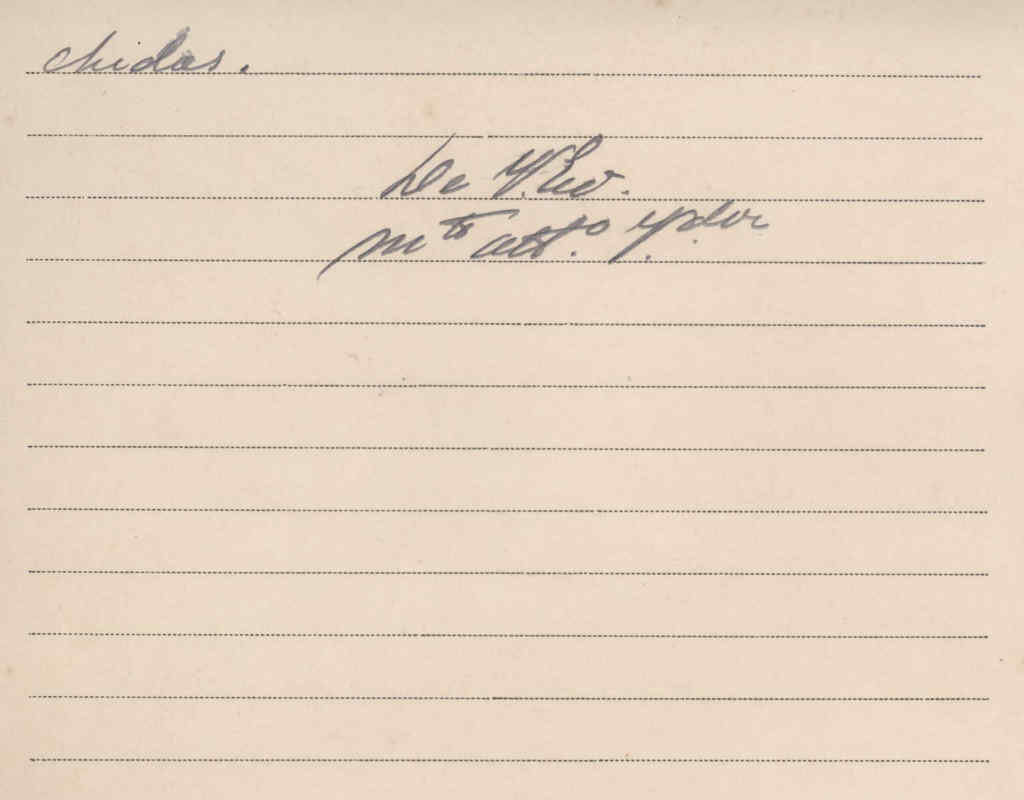 chidas.
De V. Ex.
m.to att.o